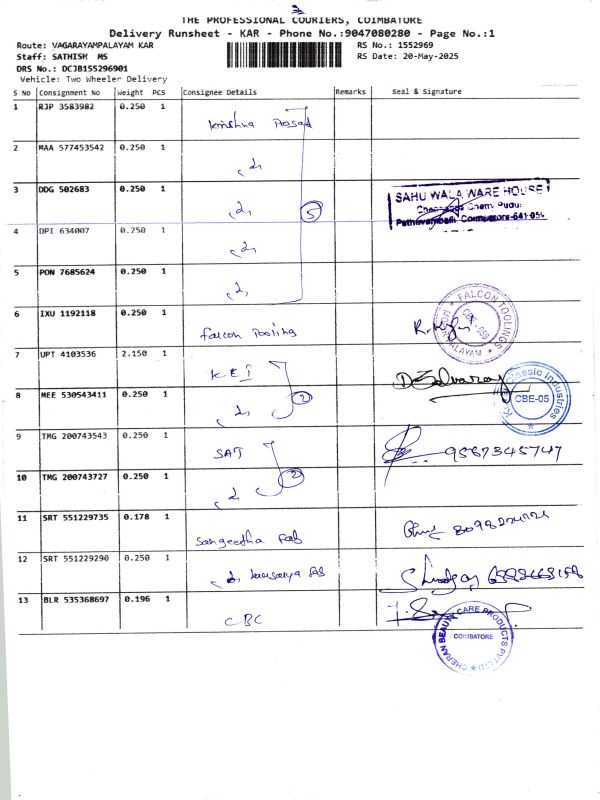 THE PROFESSIONAL COURIERS, COIMBATORE
Delivery Runsheet - KAR - Phone No.:9047080280 - Page No.:1
Route: VAGARAYAMPALAYAM KAR
RS No.: 1552969
Staff: SATHISH MS
RS Date: 20-May-2025
DRS No.: DCJB155296901
Vehicle: Two Wheeler Delivery
S No Consignment No Weight PCS Consignee Details Remarks Seal & Signature
1 RJP 3583982 0.250 1 Krishna Prasad
2 MAA 577453542 0.250 1
3 DDG 502683 0.250 1
5
SAHU WALA WARE HOUSE
Coimbatore-641-059
4 DPI 634007 0.250 1
5 PON 7685624 0.250 1
6 IXU 1192118 0.250 1 falcon Tooling
FALCON TOOLINGS
7 UPT 4103536 2.150 1 KEI
8 MEE 530543411 0.250 1
2
Classic Industries
CBE-05
9 TMG 200743543 0.250 1 SAT
9567345747
10 TMG 200743727 0.250 1
2
11 SRT 551229735 0.178 1 Sangeetha fab
12 SRT 551229290 0.250 1
13 BLR 535368697 0.196 1 CBC
CHERAN BEAUTY CARE PRODUCTS PVT LTD
COIMBATORE